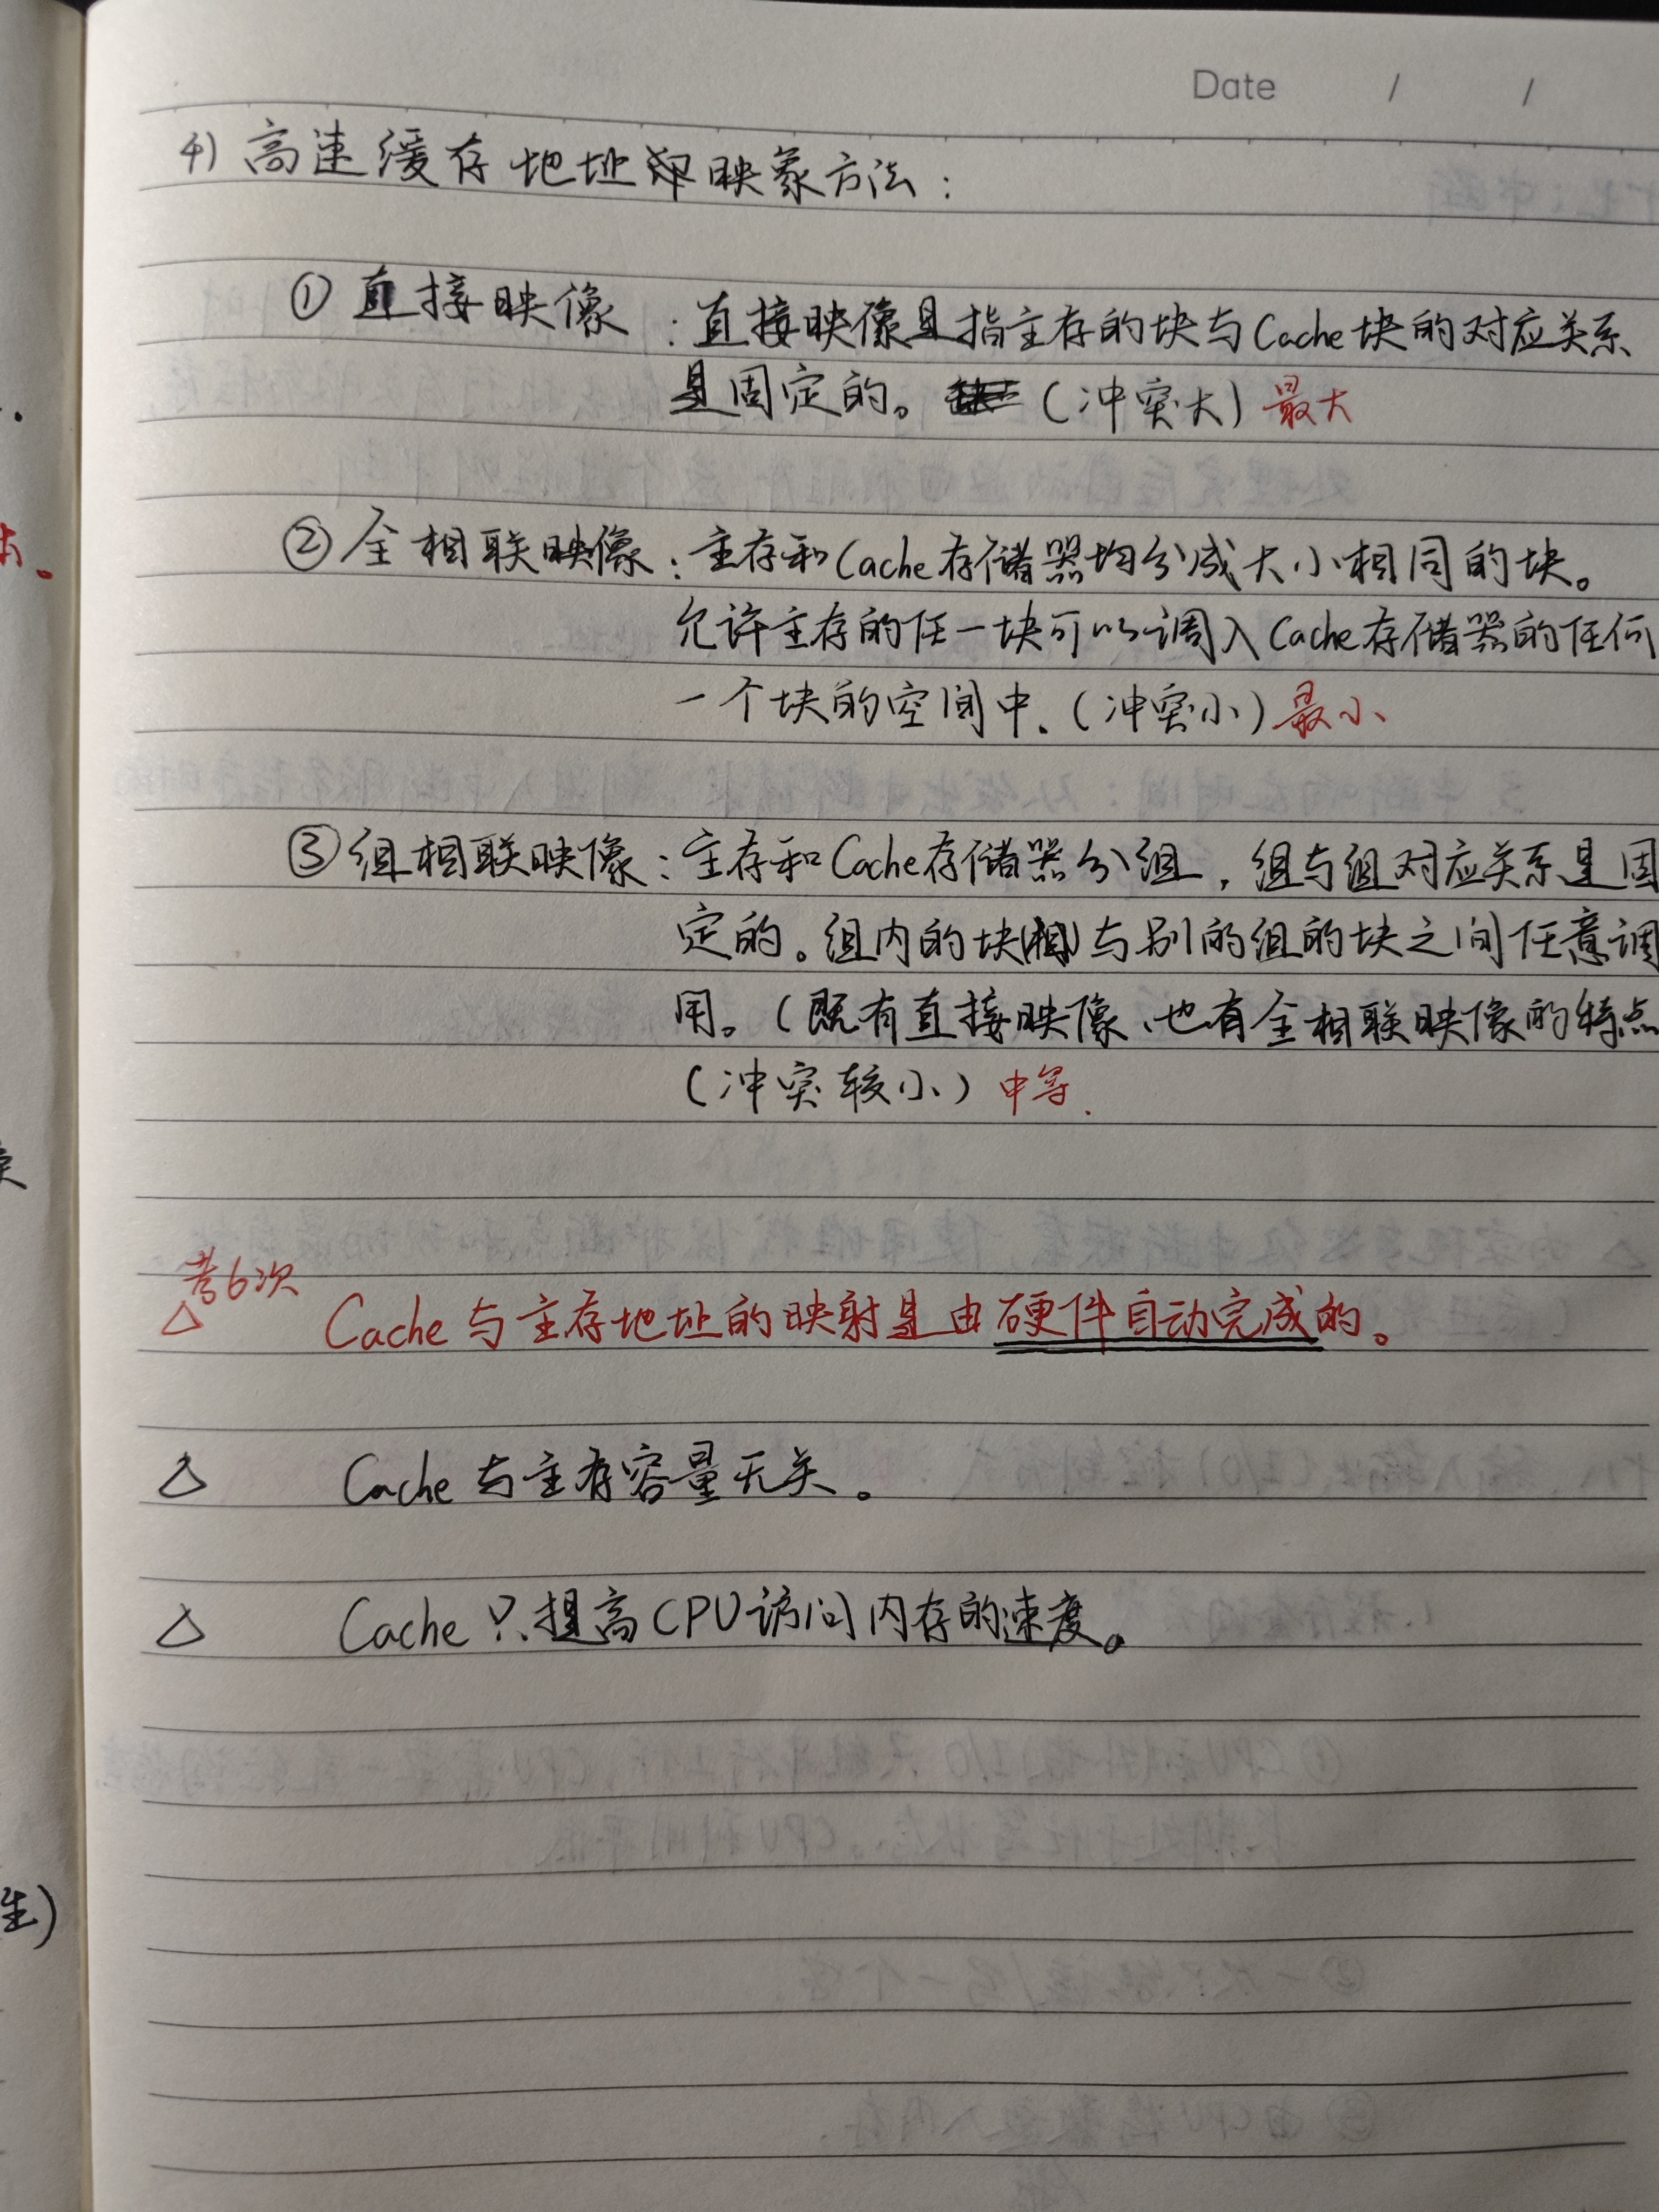 Date / /
4) 高速缓存地址映象方法：
① 直接映像：直接映像是指主存的块与Cache块的对应关系
是固定的。（冲突大）最大
② 全相联映像：主存和Cache存储器均分成大小相同的块。
允许主存的任一块可以调入Cache存储器的任何
一个块的空间中.（冲突小）最小
③ 组相联映像：主存和Cache存储器分组，组与组对应关系是固
定的。组内的块与别的组的块之间任意调
用。（既有直接映像、也有全相联映像的特点
（冲突较小）中等.
考6次
△ Cache与主存地址的映射是由硬件自动完成的。
△ Cache与主存容量无关。
△ Cache只提高CPU访问内存的速度。
生)